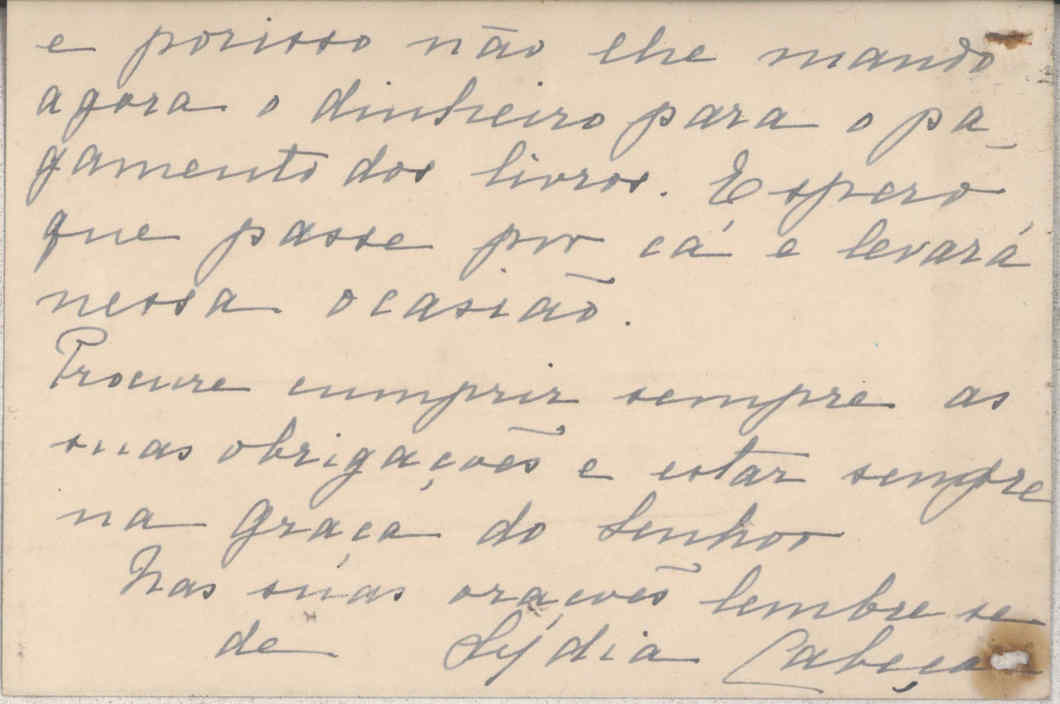 e porisso não lhe mando
agora o dinheiro para o pa-
gamento dos livros. Espero
que passe por cá e levará
nessa ocasião.
Procure cumprir sempre as
suas obrigações e estar sempre
na graça do Senhor
Nas suas orações lembre se
de Lýdia Cabeça